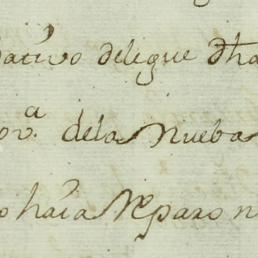 dativo deligue dha
ov.ᵃ dela Nueba
o haia Reparo n